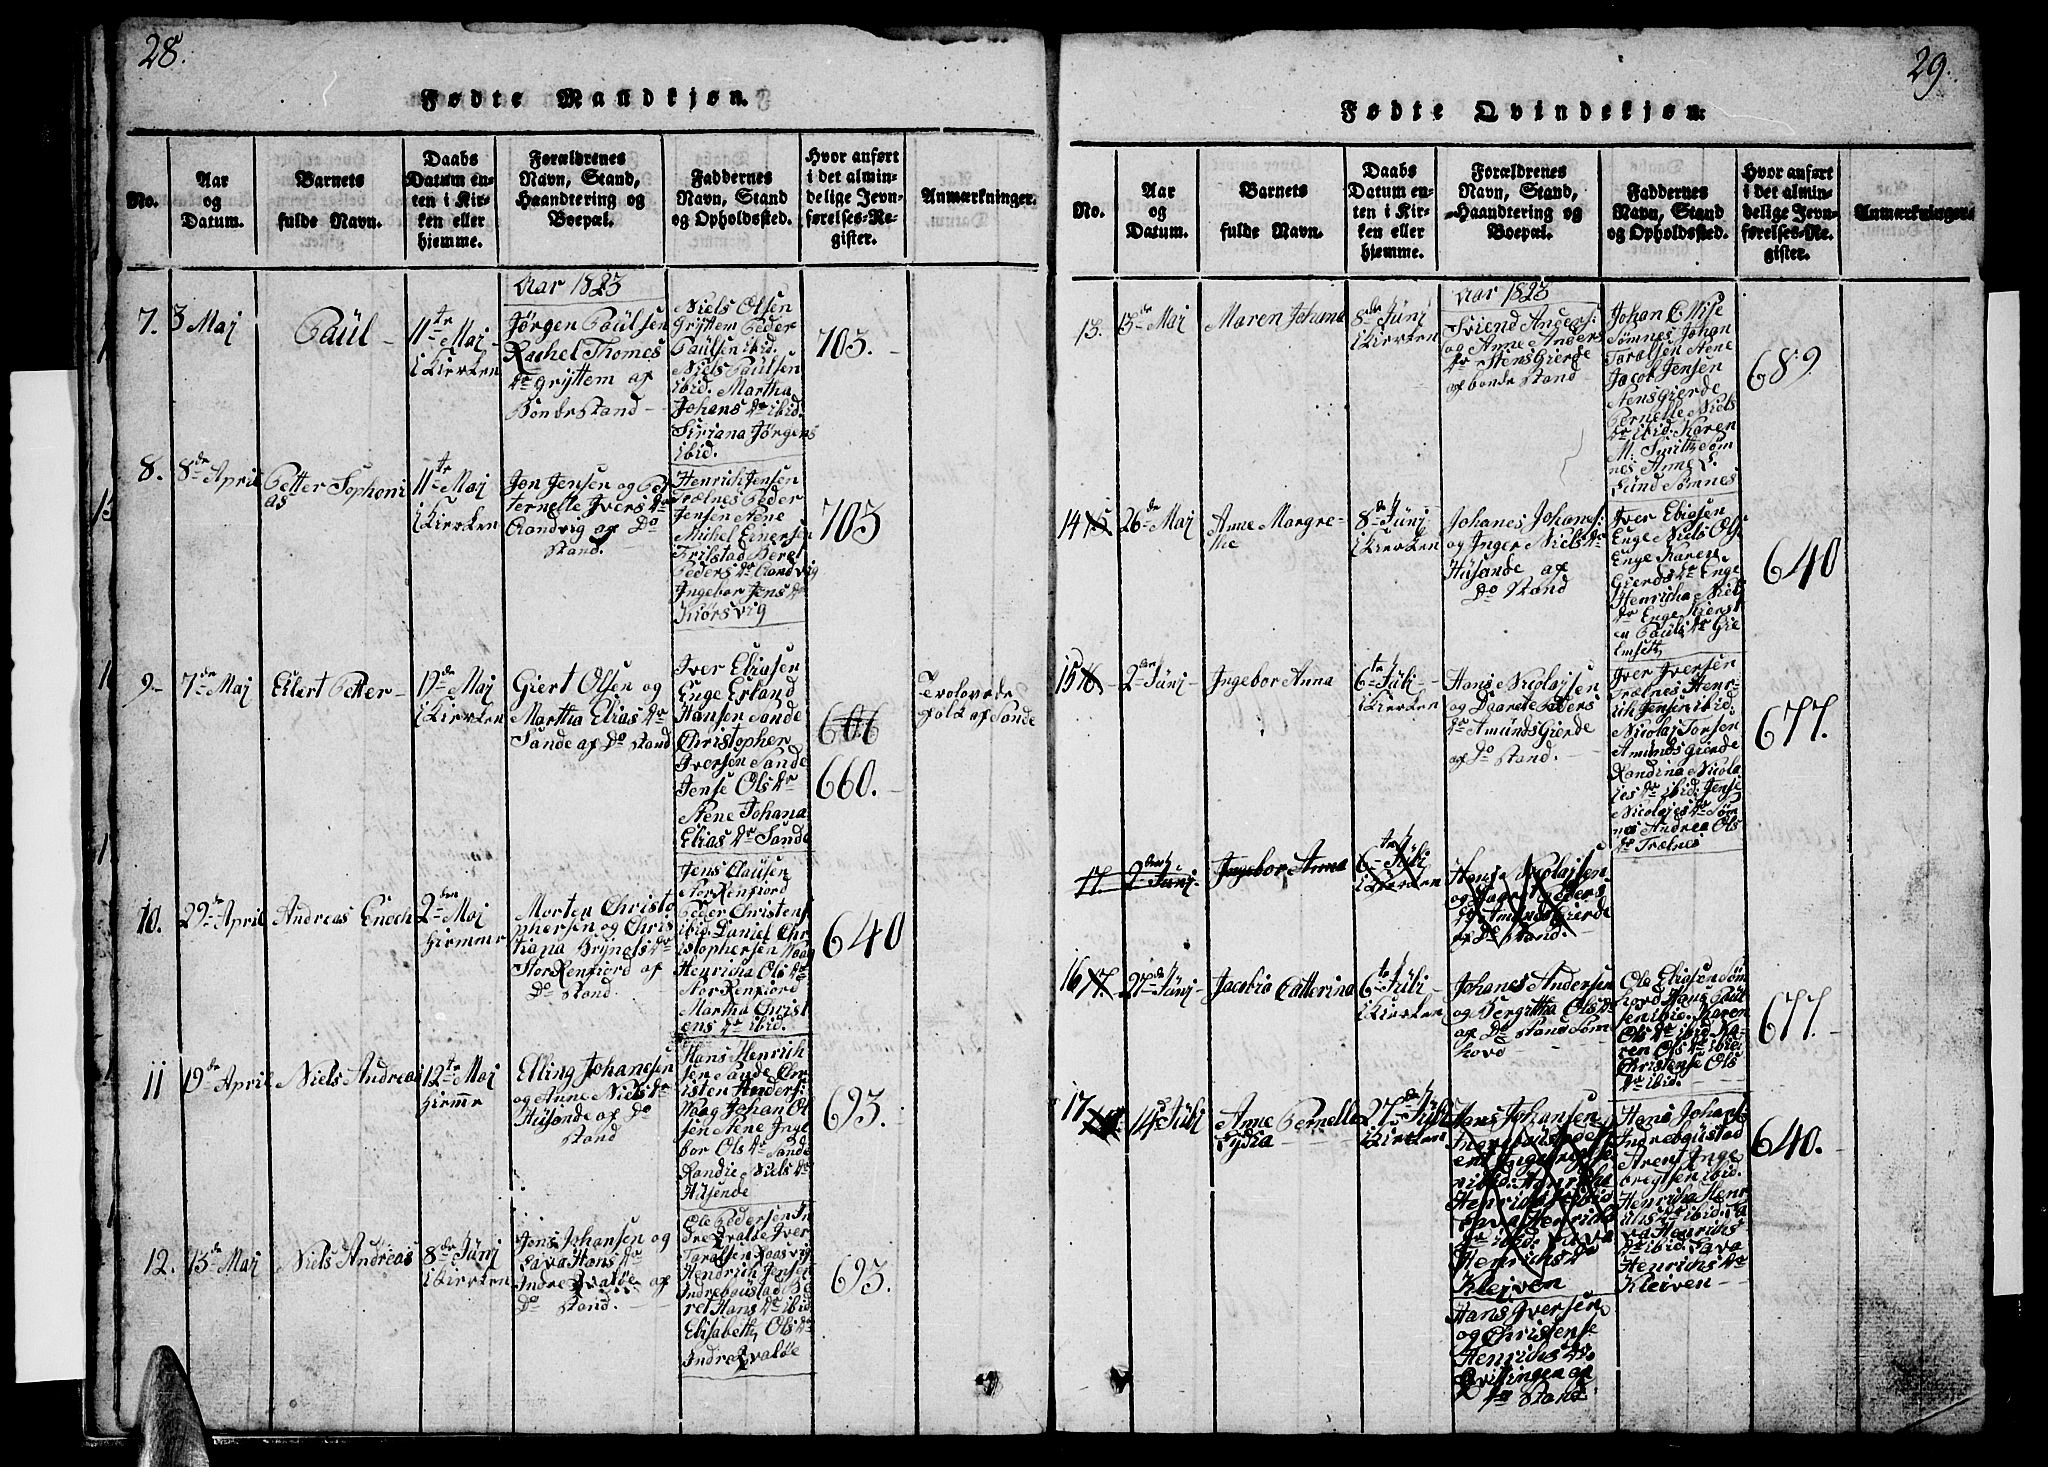 28.
Fødte Mandkjøn.
No.
Aar
og
Datum.
Barnets
fulde Navn.
Daabs
Datum en-
ten i Kir-
ken eller
hjemme.
Forældrenes
Navn, Stand,
Haandtering og
Boepæl.
Faddernes
Navn, Stand
og Opholdssted.
Hvor anført
i det almin-
delige Jevn-
førelses-Re-
gister.
Anmærkninger.
Aar 1823
7.
3 Maj
Paül -
11te Maj
i Kirken
Jørgen Paülsen
Rachel Thomes
dr Gryttem af
Bonde Stand -
Niels Olsen
Gryttem Peder
Paülsen ibid.
Niels Paülsen
ibid. Martha
Johans dr ibid.
Siriana Jørgens
ibid.
703.
8.
8de April
Petter Sophoni
as
11te Maj
i Kirken
Jon Jensen og Pet
ternelle Ivers dr
Randvig af Do
Stand.
Henrich Jensen
Trælnes Peder
Jensen
Michel Einersen
Peders dr Randvig
Ingebor Jens dr
703
9-
7de Maj
Eilert Petter -
19de Maj
i Kirken
Giert Olsen og
Martha Elias dr
Sande af Do Stand
Iver Eliasen
Enge Erland
Hansen Sande
Christopher
Iversen Sande
Jense Ols dr
Johana
Elias dr Sande
606
660.
folk af Sande
10.
29de April
Andreas Enoch
2den Maj
Hiemme
Morten Christo
phersen og Chris
tiana Brynels dr
Stor Renfiord af
Do Stand
Jens Clausen
Stor Renfiord
Peder Christens
ibid. Daniel Chr
istophersen Vaag
Henricha Ols dr
Stor Renfiord
Martha Christ
ens dr ibid.
640
11
19de April
Niels Andreas
12te Maj
Hiemme
Elling Johanesen
og Anne Niels dr
Hüsende af Do
Stand
Hans Henrich
sen Sande Chr
isten Anders:
Vaag Johan Ol
sen Inge
bor Ols dr Sande
Randie Niels dr
Hüsende
693.
12.
13de Maj
Niels Andreas
8de Jünj
i Kirken
Jens Johansen og
Hans dr
Indre Qvaløe af
Do Stand. -
Ole Pedersen In
dre Qvaløe Iver
Hendrich Jensen
Indrebøüstad Be
ret Hans dr ibid
Elisabeth Ols dr
Indre Qvaløe
693.
29.
Fødte Qvindekjøn.
No.
Aar
og
Datum.
Barnets
fulde Navn.
Daabs
Datum en-
ten i Kir-
ken eller
hjemme.
Forældrenes
Navn, Stand,
Haandtering og
Boepæl.
Faddernes
Navn, Stand
og Opholdssted.
Hvor anført
i det almin-
delige Jevn-
førelses-Re-
gister.
Anmærkninger.
Aar 1823
13.
13de Maj
Maren Johana
8de Jünj
i Kirken
Sviend Anders:
og Anne Anders
dr Stensgierde
af bonde Stand
Sømnes Johan
Jacob Jensen
Stensgierde
Pernelle Niels
dr ibid. Karen
Lünd Sømnes
689
14
26de Maj
Anne Margre-
the
8de Jünj
i Kirken
Johanes Johanes:
og Inger Niels dr
Hüsende af
Do Stand
Iver Eliasen
Enge Niels Ols:
Enge Karen
Gierds dr Enge
Henricha Niels
dr Enge Kierst
en Paüls dr
640
15
2den Jünj
Ingebor Anna
6te Jülj
i Kirken
Hans Nicolajsen
og Daaret Peders
dr Amündsgierde
af Do Stand. -
Iver Iversen
Trælnes Henr-
ich Jensen ibid
Nicolaj
Amündsgierde
Randina Nicola
ies dr ibid. Jense
Nicolajes dr Søm
nes Andrea Ols
dr Trælnes
677.
17.
2den Jünj
Ingebor Anna
6te Jülj
i Kirken
Hans Nicolajsen
og Daaret Peders
dr Amündsgierde
af Do Stand.
16
17.
27de Jünj
Jacobia Catterina
6te Jülj
i Kirken
Johanes Andersen
og Bergittha Ols dr
af Do Stand Søm
hovd
Ole Eliasen Søm
hovd Hans Paül
sen ibid. Karen
Ols dr ibid. Ka-
ren Ols dr ibid.
Christense Ols
dr ibid.
677.
17
14de Jülj
Anne Pernelle
Lydia
27de Jülj
i Kirken
Hans Johansen
Indrebøüstad
Henrichs dr
Kleiven
Hans Iversen
og Christense
Henrichs dr
af
Do Stand
Hans Johans:
Indrebøüstad
Arent Inge
bregtsen ibid.
Henricha Henr
ichs dr ibid.
Henrichs
dr ibid.
Henrichs dr
Kleiven
640.